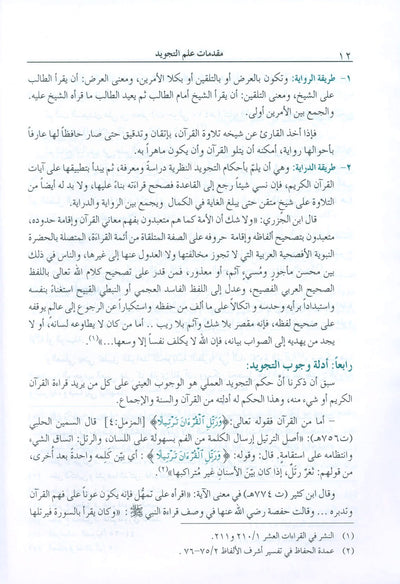 ١٢ مقدمات علم التجويد
١- طريقة الرواية: وتكون بالعرض أو بالتلقين أو بكلا الأمرين، ومعنى العرض: أن يقرأ الطالب
على الشيخ، ومعنى التلقين: أن يقرأ الشيخ أمام الطالب ثم يعيد الطالب ما قرأه الشيخ عليه.
والجمع بين الأمرين أولى.
فإذا أخذ القارئ عن شيخه تلاوة القرآن، بإتقان وتدقيق حتى صار حافظاً لها عارفاً
بأحوالها رواية، أمكنه أن يتلو القرآن وأن يكون ماهراً به.
٢- طريقة الدراية: وهي أن يلمّ بأحكام التجويد النظرية دراسةً ومعرفة، ثم يبدأ بتطبيقها على آيات
القرآن الكريم، فإن نسي شيئاً رجع إلى القاعدة فصحح قراءته بناءً عليها، ولا بد له أيضاً من
التلاوة على شيخٍ متقن حتى يبلغ الغاية في الكمال ويجمع بين الرواية والدراية.
قال ابن الجزري: «ولا شك أن الأمة كما هم متعبدون بفهم معاني القرآن وإقامة حدوده،
متعبدون بتصحيح ألفاظه وإقامة حروفه على الصفة المتلقاة من أئمة القراءة، المتصلة بالحضرة
النبوية الأفصحية العربية التي لا تجوز مخالفتها ولا العدول عنها إلى غيرها، والناس في ذلك
بين محسن مأجور ومُسيءٍ آثم، أو معذور، فمن قدر على تصحيح كلام الله تعالى باللفظ
الصحيح العربي الفصيح، وعدل إلى اللفظ الفاسد العجمي أو النبطي القبيح استغناءً بنفسه
واستبداداً برأيه وحدسه و اتكالاً على ما ألف من حفظه واستكباراً عن الرجوع إلى عالم يوقفه
على صحيح لفظه، فإنه مقصر بلا شك وآثم بلا ريب .. أما من كان لا يطاوعه لسانه، أو لا
يجد من يهديه إلى الصواب بيانه، فإن الله لا يكلف نفساً إلا وسعها...»(١).
رابعاً: أدلة وجوب التجويد:
سبق أن ذكرنا أنّ حكم التجويد العملي هو الوجوب العيني على كل من يريد قراءة القرآن
الكريم أو شيء منه، وهذا الحكم له أدلته من القرآن والسنة والإجماع.
- أما من القرآن فقوله تعالى: ﴿وَرَتِّلِ ٱلْقُرْءَانَ تَرْتِيلًا﴾ [المزمل:٤] قال السمين الحلبي
(ت٧٥٦هـ): «أصل الترتيل إرسال الكلمة من الفم بسهولة على اللسان، والرتل: اتساق الشيء
وانتظامه على استقامة. قال: وقوله: ﴿وَرَتِّلِ ٱلْقُرْءَانَ تَرْتِيلًا﴾ : أي بيّن كلمه واحدةً بعد أُخرى،
من قولهم: ثغرٌ رَتَلٌ، إذا كان بيّن الأسنان غير مُتراكبها»(٢).
وقال ابن كثير (ت ٧٧٤هـ) في معنى الآية: «اقرأه على تمهُّلٍ فإنه يكون عوناً على فهم القرآن
وتدبره ... وقالت حفصة رضي الله عنها في وصف قراءة النبي ﷺ: «وكان يقرأ بالسورة فيرتلها
(١) النشر في القراءات العشر ٢١٠/١ و٢١١.
(٢) عمدة الحفاظ في تفسير أشرف الألفاظ ٧٥/٢-٧٦.